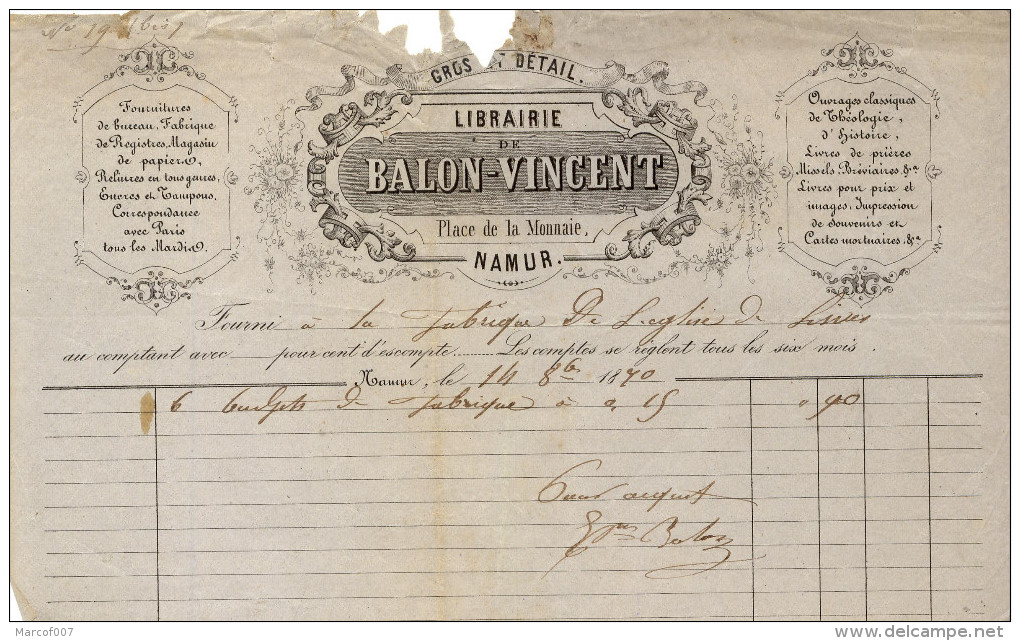 No 19 (bis)
GROS ET DÉTAIL.
LIBRAIRIE
DE
BALON-VINCENT
Place de la Monnaie,
NAMUR.
Fournitures
de bureau, Fabrique
de Registres, Magasin
de papiers,
Reliûres en tous genres,
Encres et Tampons,
Correspondance
avec Paris
tous les Mardis.
Ouvrages classiques
de Théologie,
d'Histoire,
Livres de prières
Missels, Bréviaires, &a
Livres pour prix et
images, Impression
de souvenirs et
Cartes mortuaires, &a
Fourni à la fabrique De L'eglise de
au comptant avec pour cent d'escompte. Les comptes se règlent tous les six mois.
Namur, le 14 8bre 1870
6 budgets de fabrique à 0,15 " 90
Pour acquit
Balon
Marcof007
delcampe.net